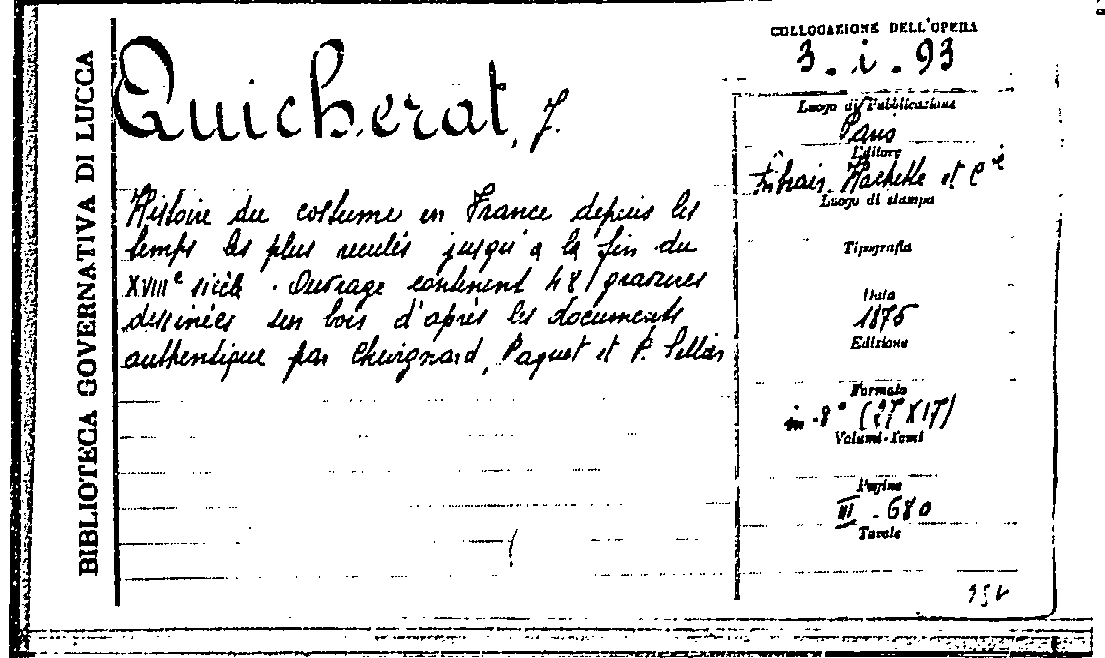 BIBLIOTECA GOVERNATIVA DI LUCCA
Quicherat, J.
Histoire du costume en France depuis les
temps les plus reculés jusqu'a la fin du
XVIIIe siècle . Ouvrage contenent 481 gravures
dessinées sur bois d'après les documents
authentique par Chevignard, Paquet et P. Sellier
COLLOCAZIONE DELL'OPERA
3. i. 93
Luogo di Pubblicazione
Paris
Editore
Librair. Hachette et Cie
Luogo di stampa
Tipografia
Data
1875
Edizione
Formato
in-8° (27X17)
Volumi-Tomi
Pagine
III - 680
Tavole